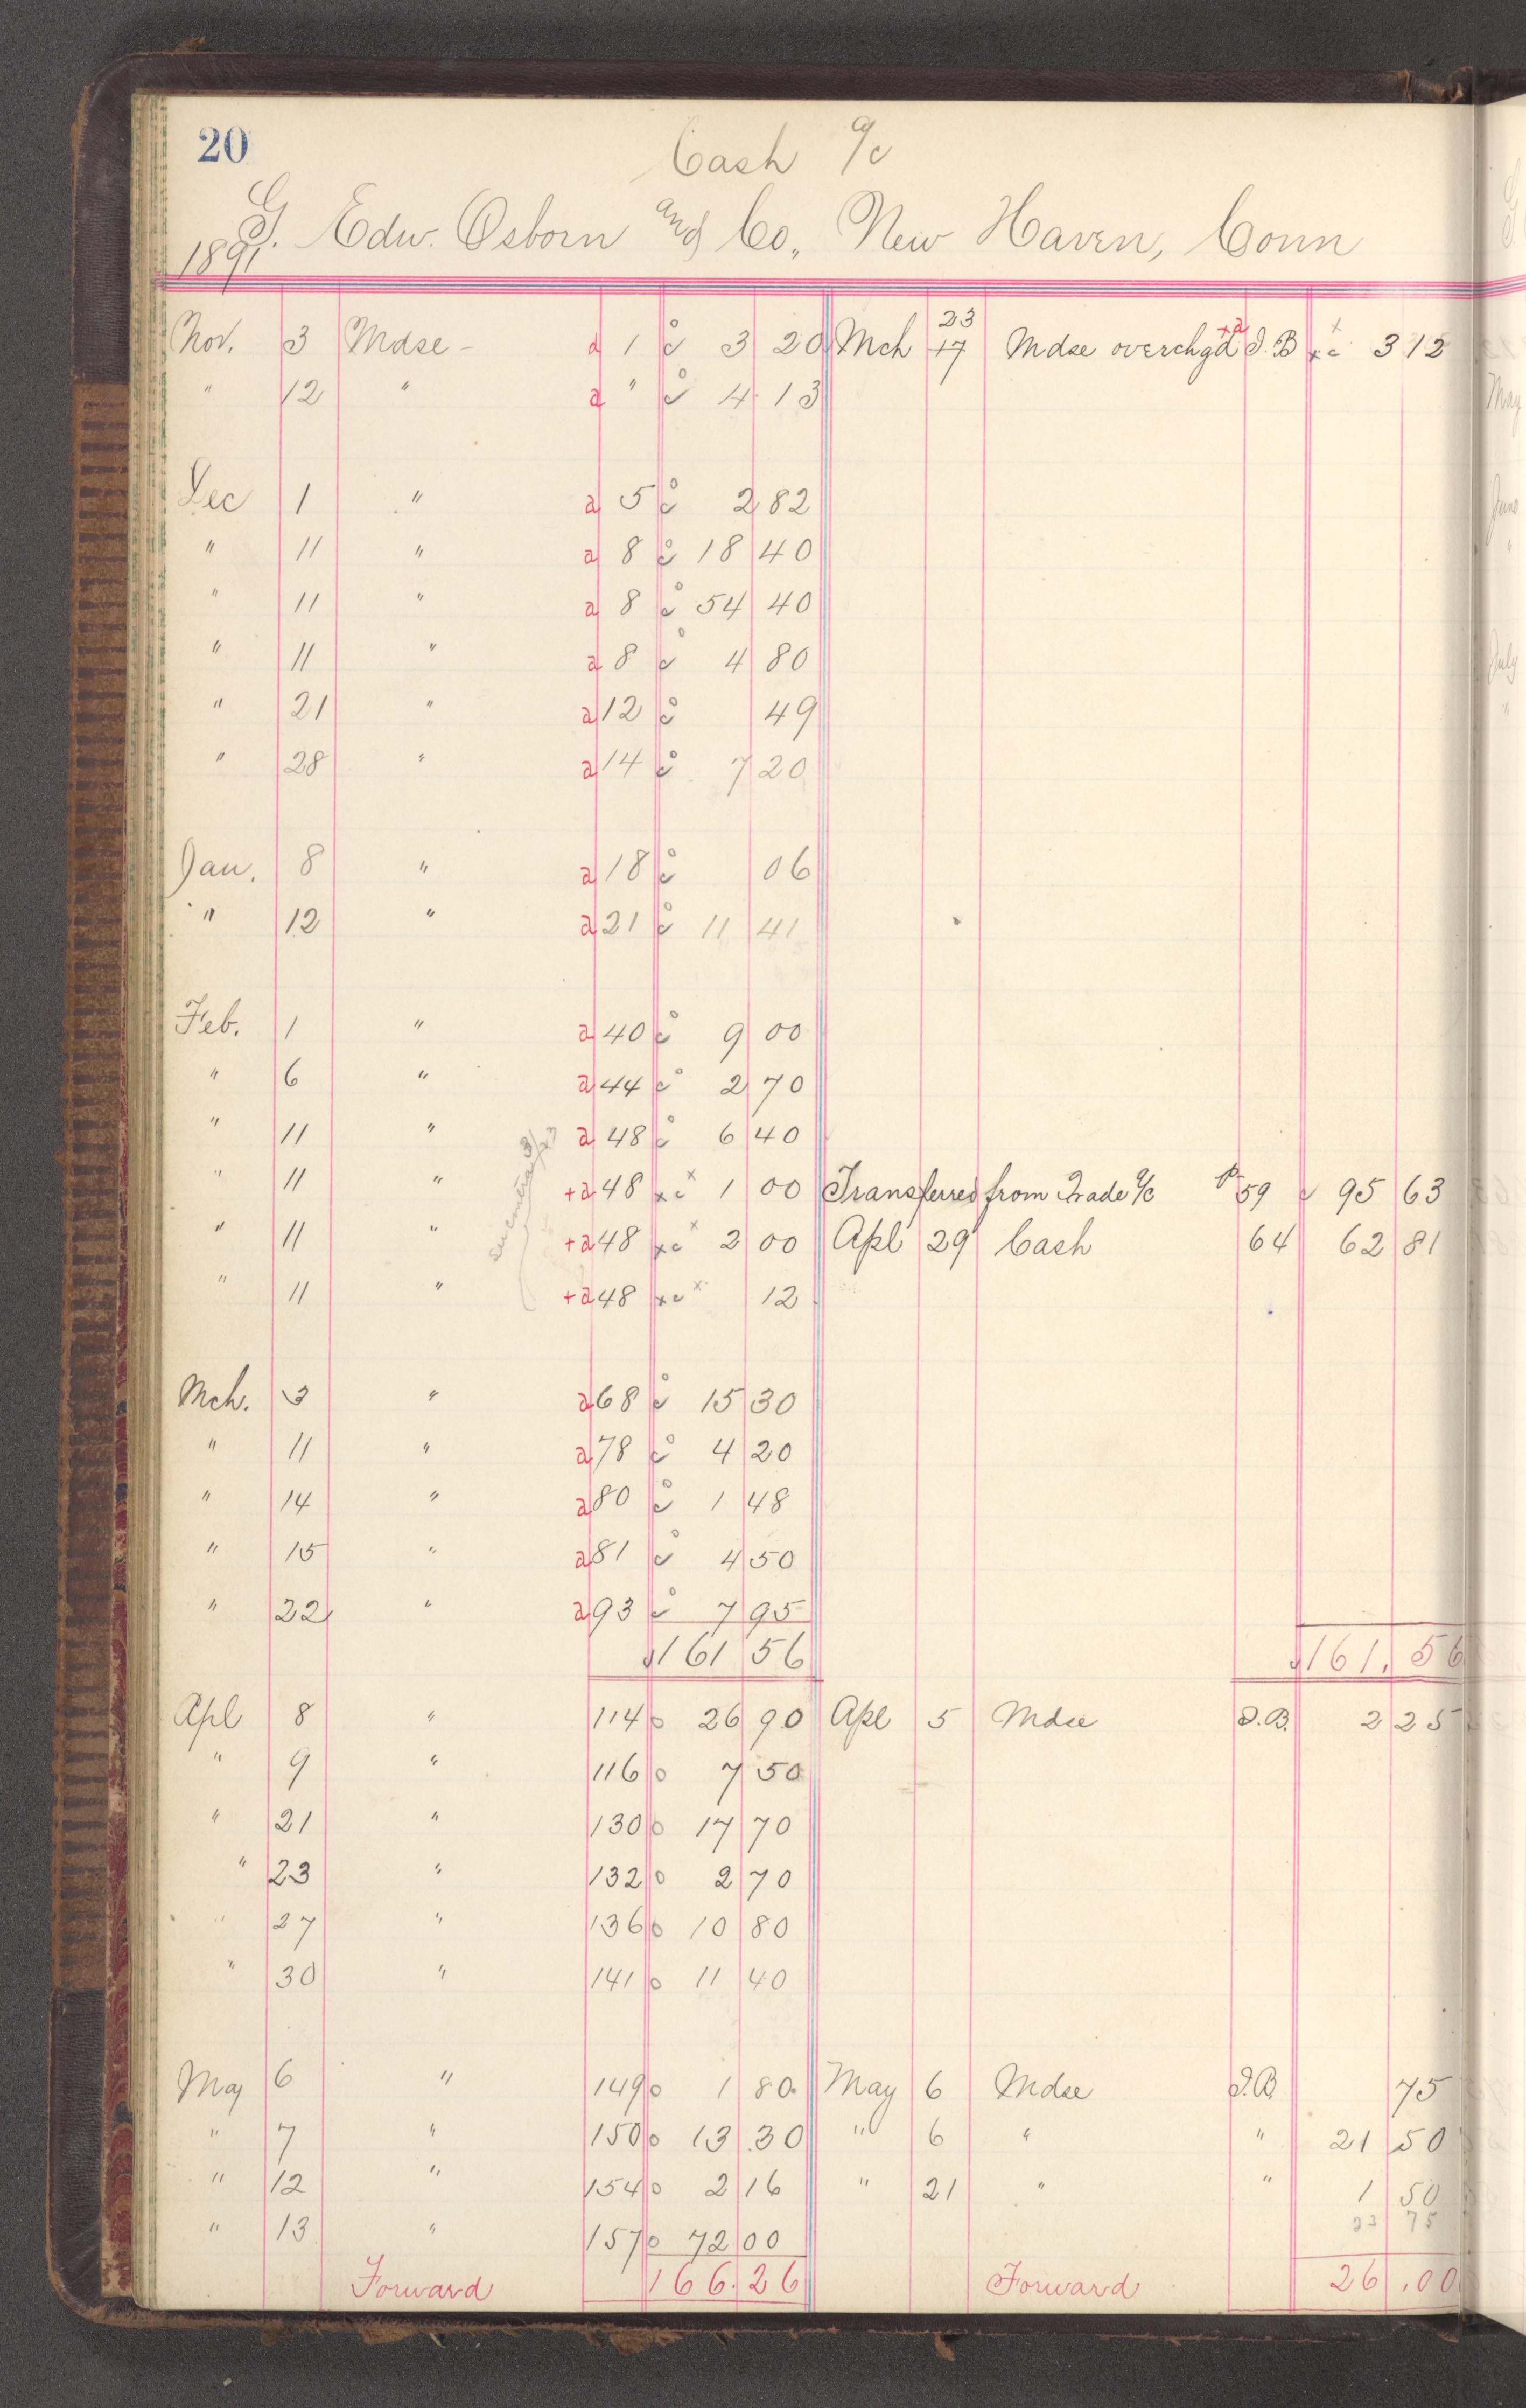 20
Cash a/c
G. Edw. Osborn and Co., New Haven, Conn
1891
23
Nov. 3 Mdse - a 1 c 3 20 Mch 17 Mdse overchgd +a J.B x c 3 12
" 12 " a " c 4 13
Dec 1 " a 5 c 2 82
" 11 " a 8 c 18 40
" 11 " a 8 c 54 40
" 11 " a 8 c 4 80
" 21 " a 12 c 49
" 28 " a 14 c 7 20
Jan. 8 " a 18 c 06
" 12 " a 21 c 11 41
Feb. 1 " a 40 c 9 00
" 6 " a 44 c 2 70
" 11 " a 48 c 6 40
" 11 " +a 48 x c x 1 00 Transferred from Trade a/c P 59 c 95 63
" 11 " +a 48 x c x 2 00 Apl 29 Cash 64 62 81
" 11 " +a 48 x c x 12
Mch. 3 " a 68 c 15 30
" 11 " a 78 c 4 20
" 14 " a 80 c 1 48
" 15 " a 81 c 4 50
" 22 " a 93 c 7 95
161 56 161. 56
Apl 8 " 114 o 26 90 Apl 5 Mdse J.B. 2 25
" 9 " 116 o 7 50
" 21 " 130 o 17 70
" 23 " 132 o 2 70
" 27 " 136 o 10 80
" 30 " 141 o 11 40
May 6 " 149 o 1 80 May 6 Mdse J.B. 75
" 7 " 150 o 13 30 " 6 " " 21 50
" 12 " 154 o 2 16 " 21 " " 1 50
23 75
" 13 " 157 o 72 00
Forward 166.26 Forward 26.00
May
June
"
July
"